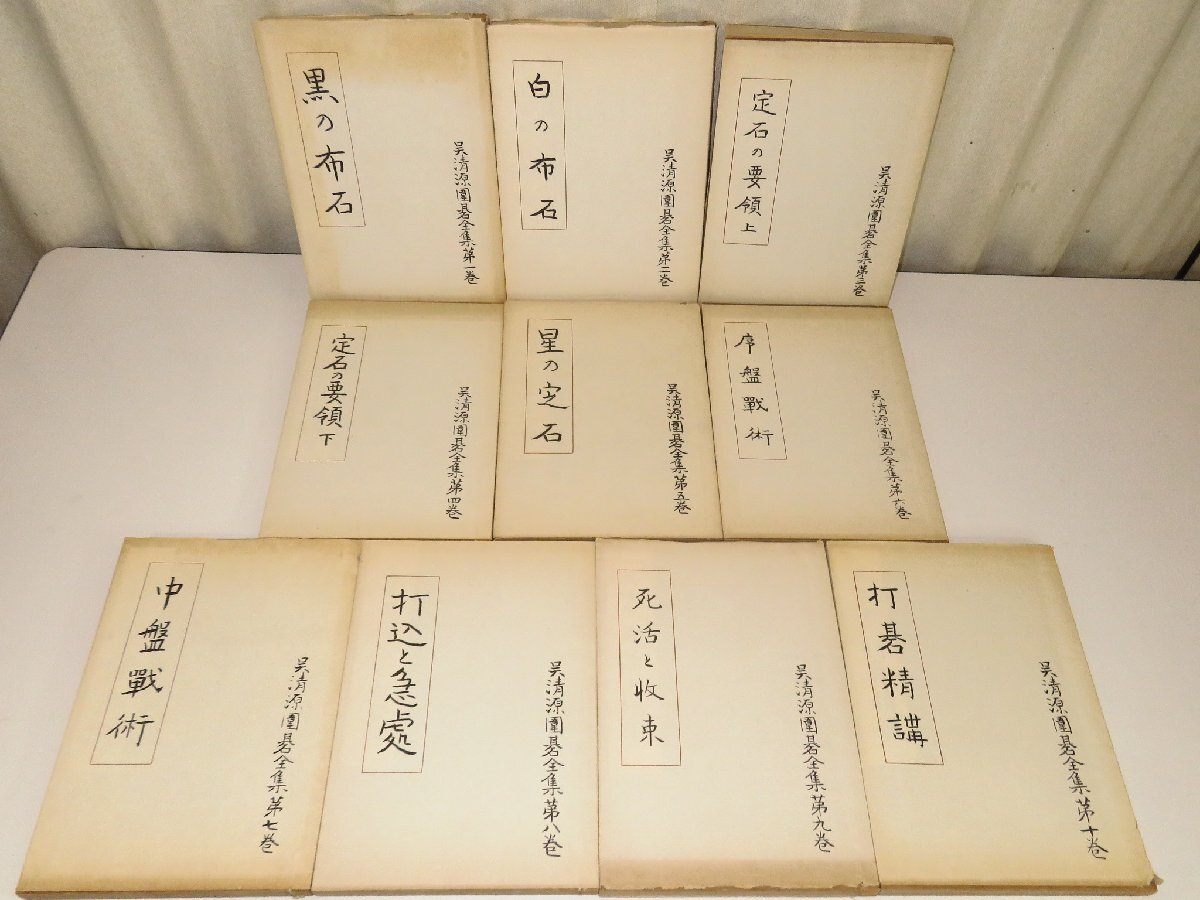 黒の布石
呉清源圍碁全集第一巻
白の布石
呉清源圍碁全集第二巻
定石の要領上
呉清源圍碁全集第三巻
定石の要領下
呉清源圍碁全集第四巻
星の定石
呉清源圍碁全集第五巻
序盤戰術
呉清源圍碁全集第六巻
中盤戰術
呉清源圍碁全集第七巻
打込と急處
呉清源圍碁全集第八巻
死活と收束
呉清源圍碁全集第九巻
打碁精講
呉清源圍碁全集第十巻